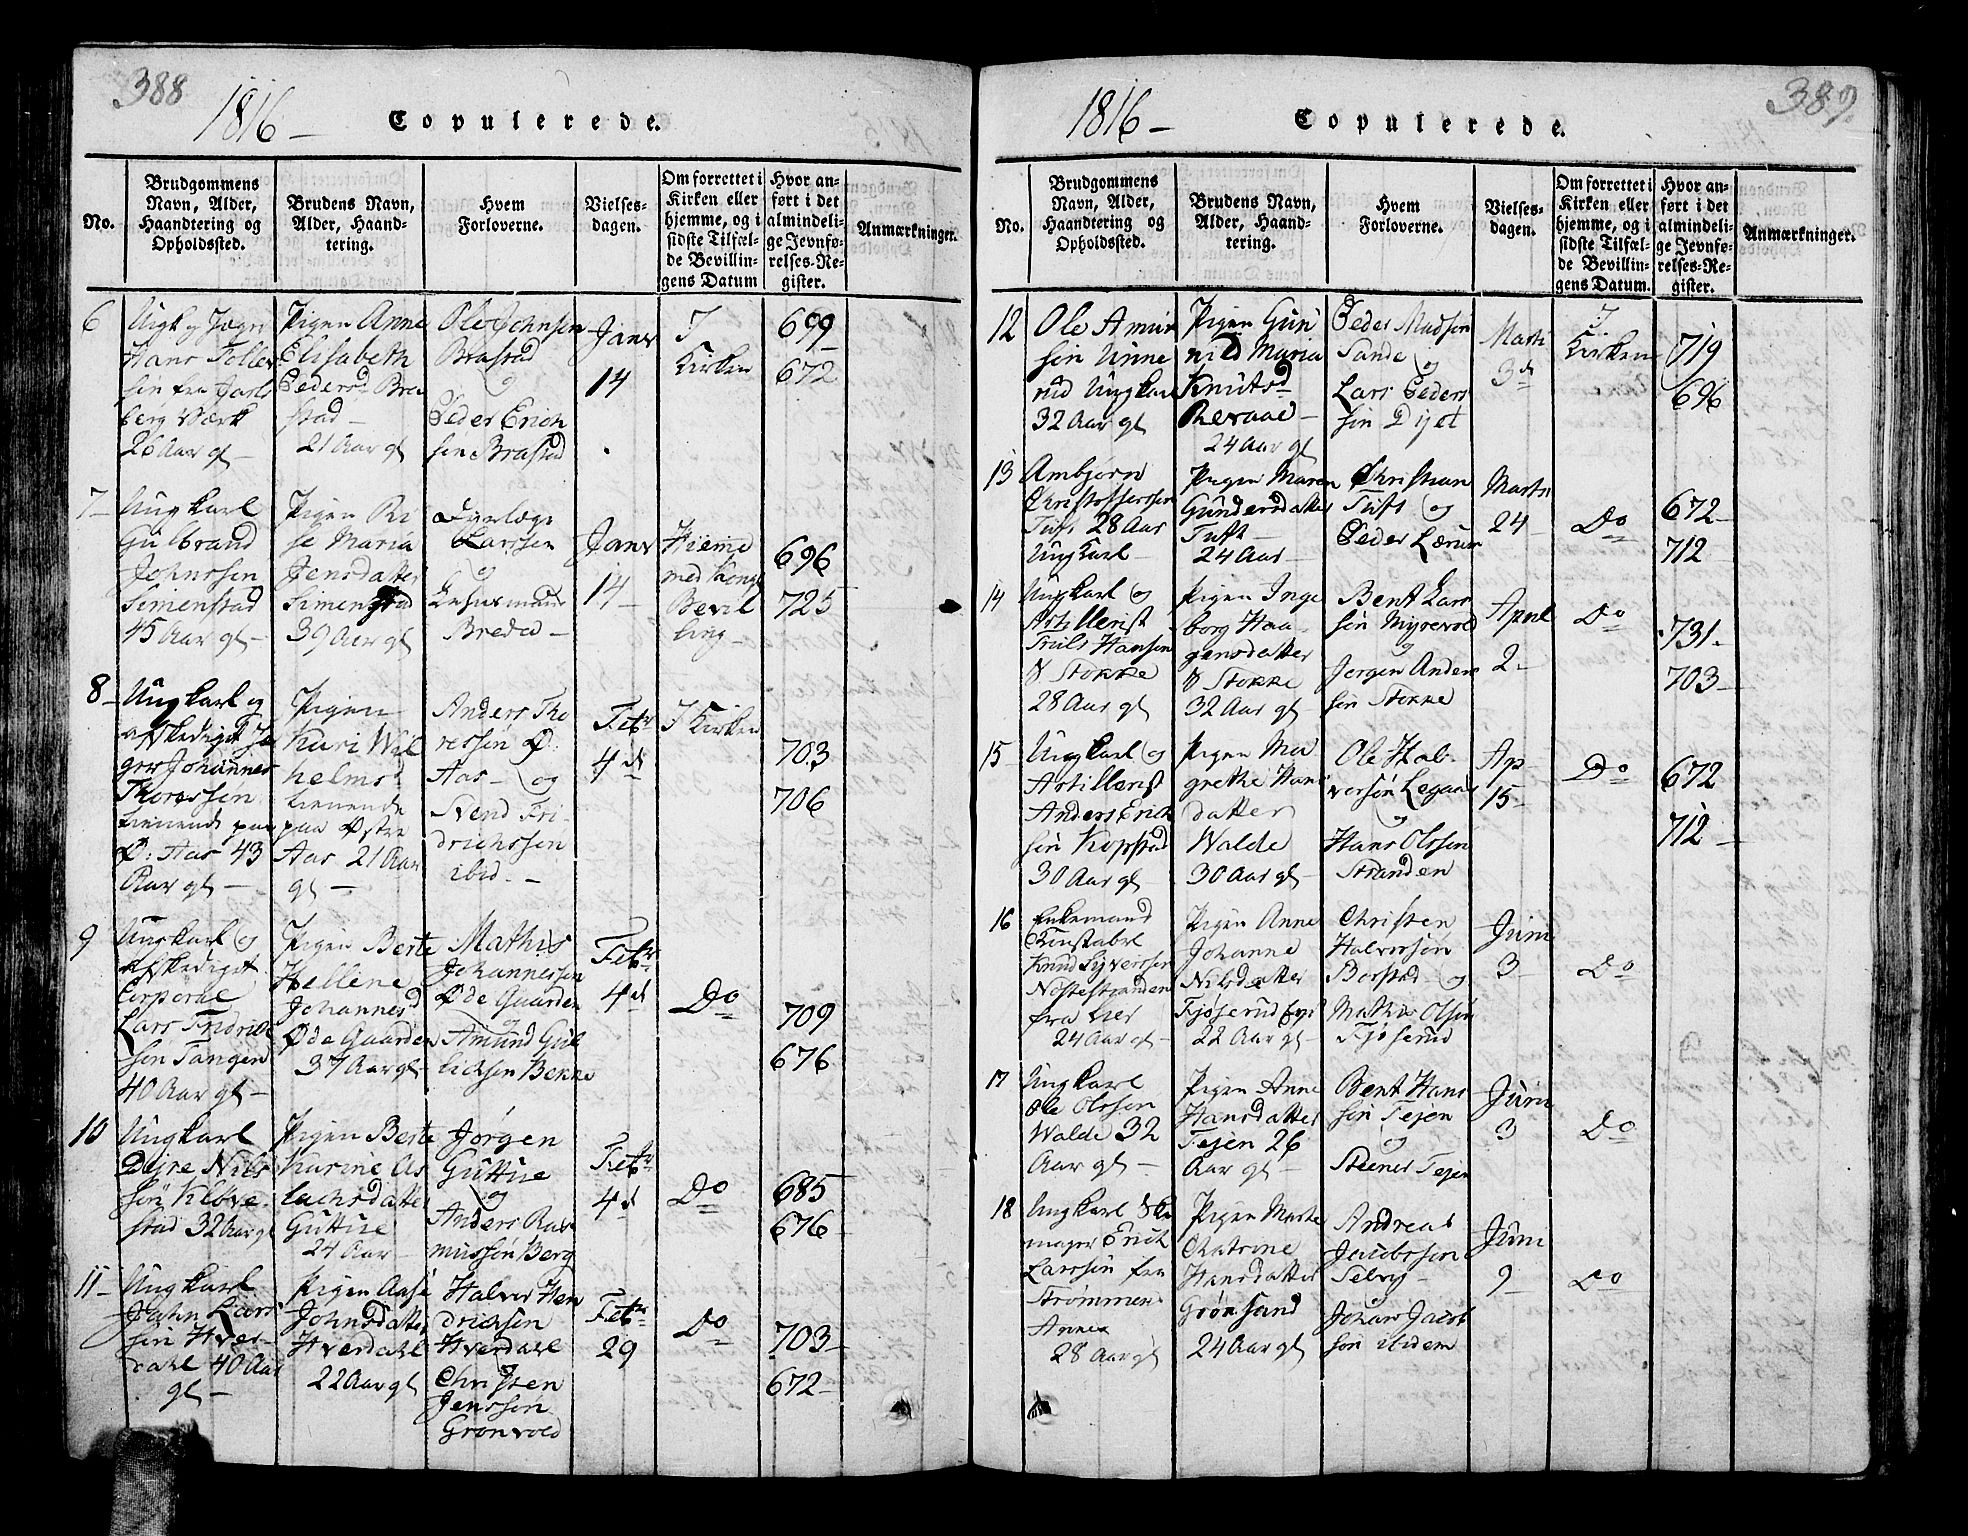 388
1816 —
Copulerede.
No.
Brudgommens Navn, Alder, Haandtering og Opholdssted.
Brudens Navn, Alder, Haandtering.
Hvem Forloverne.
Vielsesdagen.
Om forrettet i Kirken eller hjemme, og i sidste Tilfælde Bevillingens Datum
Hvor anført i det almindelige Jevnførelses-Register.
Anmærkninger.
6
Hans Toller
søn fra Jarls
berg Værk
26 Aar gl —
Pigen Anne
Elisabeth
Pedersd Bra
stad —
21 Aar gl
Ole Johnsen
Brastad
og
Peder Erich
søn Brastad
Janr
14
I
Kirken
699
672
7 —
Ungkarl
Gulbrand
Johnssen
Simenstad
45 Aar gl —
Pigen Ri
se Maria
Jensdatter
Simenstad
39 Aar gl
Larssen
og
Breded —
Janr
14
Hieme
med Kongl
Bevil
ling —
696
725
8 —
Ungkarl og
afskediget Jæ
ger Johannes
Thoressøn
tienende paa
Ø: Aas 43
Aar gl —
Pigen
Kari Wil
helmsd
tienende
paa Østre
Aas 21 Aar
gl —
Anders Tho
ressøn Ø:
Aas — og
Svend Fri
drichssøn
ibid. —
Febr
4d
I Kirken
703
706
9
Ungkarl og
afskediget
Corporal
Lars Fridrich
søn Tangen
40 Aar gl —
Pigen Berte
Hellene
Johannesd
Øde Gaarden
37 Aar gl —
Mathis
Johannessen
Øde Gaarden
og
Amund Gul
lichsen Bekke
Febr
4d
Do
709
676
10
Ungkarl
Dyre Nils
søn Kløve
stad 32 Aar gl
Pigen Berte
Karine As
lachsdatter
Guttue
24 Aar —
Jørgen
Guttue
og
Anders Ras
mussøn Berg
Febr
4d
Do
685
676
11 —
Ungkarl
John Lars
søn Hver
dahl 40 Aar
gl —
Pigen Aase
Johnsdatter
Hverdahl
22 Aar gl
Halvor Hen
drichsen
Hverdahl
og
Christen
Jenssøn
Grønvold
Febr
29
Do
703
672 —
389.
1816 —
Copulerede.
No.
Brudgommens Navn, Alder, Haandtering og Opholdssted.
Brudens Navn, Alder, Haandtering.
Hvem Forloverne.
Vielsesdagen.
Om forrettet i Kirken eller hjemme, og i sidste Tilfælde Bevillingens Datum.
Hvor anført i det almindelige Jevnførelses-Register.
Anmærkninger.
12
Ole Amun
søn Unne
rud Ungkarl
32 Aar gl
Pigen Gun
nild Maria
Knutsd
Revaae —
24 Aar gl
Peder Madsen
Sande
og
Lars Peders
søn Dyet
Marti
3d
I
Kirken
719
696
13
Ambjørn
Christofferssen
Tuft 28 Aar
Ungkarl —
Pigen Maren
Gundersdatter
Tuft —
24 Aar —
Christian
Tuft og
Peder Lærum
Marti
24
Do
672 —
712
14
Ungkarl og
Artillerist
Truls Hansen
V Stokke
28 Aar gl
Pigen Inge
borg Haa
gensdatter
V Stokke
32 Aar gl —
Bent Lars
søn Myrevold
og
Jørgen Anders
søn Stokke
April
2 —
Do
731 —
703 —
15
Ungkarl og
Artillerist
Anders Erich
søn Kopstad
30 Aar gl —
Pigen Ma
grethe Hans
datter
Walde
30 Aar gl —
Ole Hal
vorsøn Legaard
og
Hans Olssen
Stranden
Ap
15 —
Do
672
712 —
16
Enkemand
Constabel
Knud Syverssen
Nøstestranden
fra Lier
24 Aar gl —
Pigen Anne
Johanne
Nilsdatter
Fjøserud
22 Aar gl —
Christen
Halvorsøn
Borstad og
Mathis Olsøn
Fjøserud
Juni
3
Do
17
Ungkarl
Ole Olssen
Walde 32
Aar gl —
Pigen Anne
Hansdatter
Tejen 26
Aar gl —
Bent Hans
søn Tejen
og
Steener Tejen
Juni
3
Do
18
Ungkarl Sko
mager Erich
Larssøn fra
Strømmens
Annex
28 Aar gl
Pigen Marte
Chatrine
Hansdatter
Grønsand
24 Aar gl
Andreas
Jacobssøn
Selvig —
Johan Jacob
søn ibidem
Juni
9 —
Do